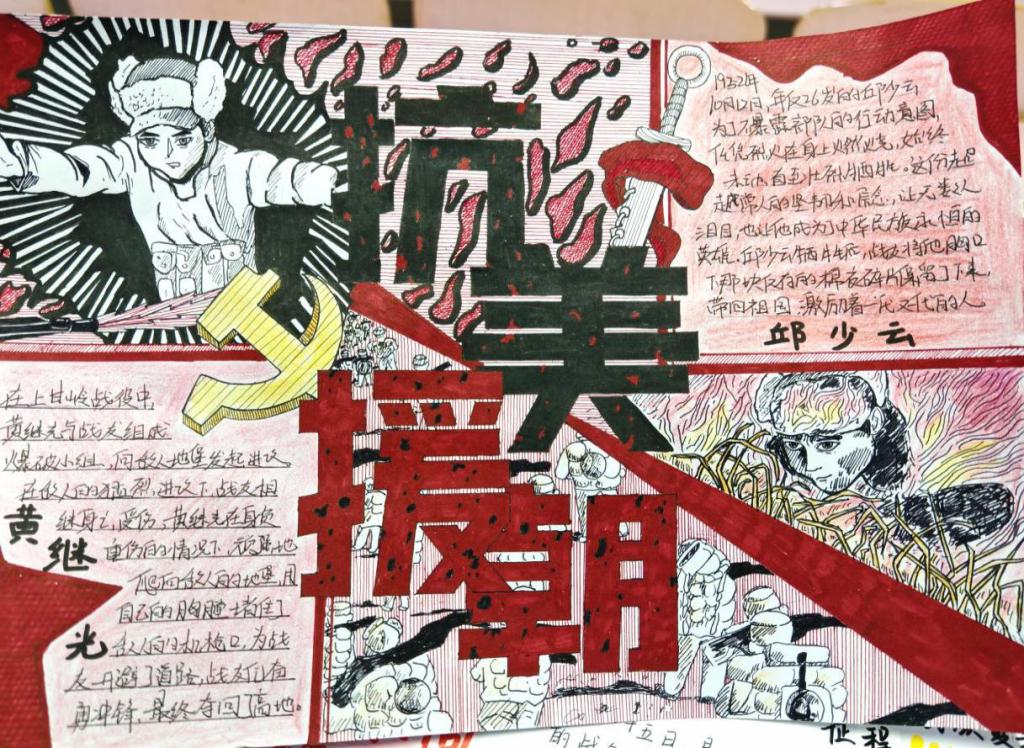 抗美
援朝
1922年
10月12日,年仅26岁的邱少云
为了不暴露部队的行动意图,
任凭烈火在身上燃烧,始终
未动直至壮烈牺牲。这份远超
越常人的坚韧和信念,让无数人
也让他成为了中华民族永恒的
英雄。邱少云牺牲后,战友将他胸口
下那块仅存的棉衣碎片保留了下来,
带回祖国,激励着一代又一代的人
邱少云
在上甘岭战役中,
黄继光与战友组成
爆破小组,向敌人地堡发起进攻
在敌人的猛烈进攻下,战友相
继身亡、受伤,黄继光在身负
重伤的情况下,顽强地
爬向敌人的地堡,用
自己的胸膛堵住了
敌人的机枪口,为战
友开辟了道路,战友们在
冲锋,最终夺回了高地。
黄继光
征程
五日,
的战